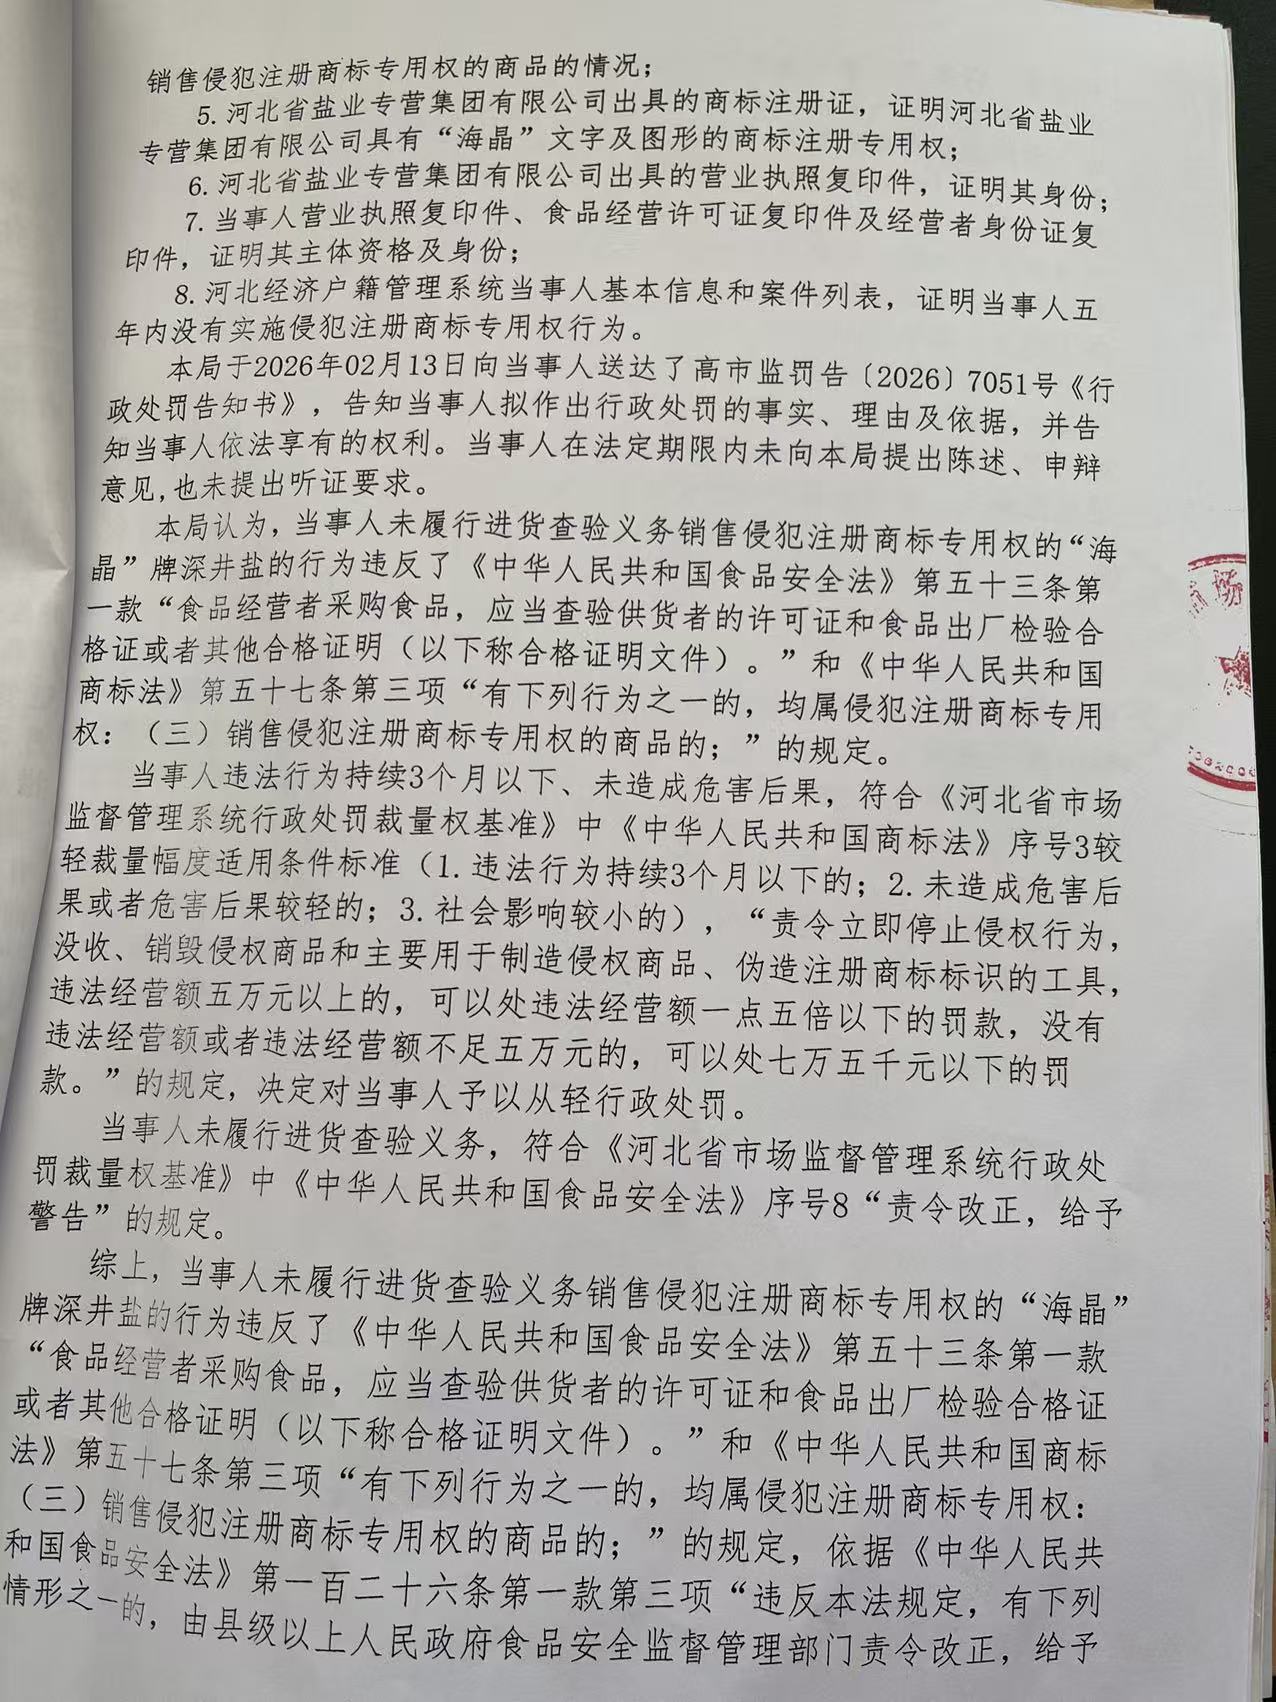 销售侵犯注册商标专用权的商品的情况；
5.河北省盐业专营集团有限公司出具的商标注册证，证明河北省盐业
专营集团有限公司具有“海晶”文字及图形的商标注册专用权；
6.河北省盐业专营集团有限公司出具的营业执照复印件，证明其身份；
7.当事人营业执照复印件、食品经营许可证复印件及经营者身份证复
印件，证明其主体资格及身份；
8.河北经济户籍管理系统当事人基本信息和案件列表，证明当事人五
年内没有实施侵犯注册商标专用权行为。
本局于2026年02月13日向当事人送达了高市监罚告〔2026〕7051号《行
政处罚告知书》，告知当事人拟作出行政处罚的事实、理由及依据，并告
知当事人依法享有的权利。当事人在法定期限内未向本局提出陈述、申辩
意见,也未提出听证要求。
本局认为，当事人未履行进货查验义务销售侵犯注册商标专用权的“海
晶”牌深井盐的行为违反了《中华人民共和国食品安全法》第五十三条第
一款“食品经营者采购食品，应当查验供货者的许可证和食品出厂检验合
格证或者其他合格证明（以下称合格证明文件）。”和《中华人民共和国
商标法》第五十七条第三项“有下列行为之一的，均属侵犯注册商标专用
权：（三）销售侵犯注册商标专用权的商品的；”的规定。
当事人违法行为持续3个月以下、未造成危害后果，符合《河北省市场
监督管理系统行政处罚裁量权基准》中《中华人民共和国商标法》序号3较
轻裁量幅度适用条件标准（1.违法行为持续3个月以下的；2.未造成危害后
果或者危害后果较轻的；3.社会影响较小的），“责令立即停止侵权行为，
没收、销毁侵权商品和主要用于制造侵权商品、伪造注册商标标识的工具，
违法经营额五万元以上的，可以处违法经营额一点五倍以下的罚款，没有
违法经营额或者违法经营额不足五万元的，可以处七万五千元以下的罚
款。”的规定，决定对当事人予以从轻行政处罚。
当事人未履行进货查验义务，符合《河北省市场监督管理系统行政处
罚裁量权基准》中《中华人民共和国食品安全法》序号8“责令改正，给予
警告”的规定。
综上，当事人未履行进货查验义务销售侵犯注册商标专用权的“海晶”
牌深井盐的行为违反了《中华人民共和国食品安全法》第五十三条第一款
“食品经营者采购食品，应当查验供货者的许可证和食品出厂检验合格证
或者其他合格证明（以下称合格证明文件）。”和《中华人民共和国商标
法》第五十七条第三项“有下列行为之一的，均属侵犯注册商标专用权：
（三）销售侵犯注册商标专用权的商品的；”的规定，依据《中华人民共
和国食品安全法》第一百二十六条第一款第三项“违反本法规定，有下列
情形之一的，由县级以上人民政府食品安全监督管理部门责令改正，给予